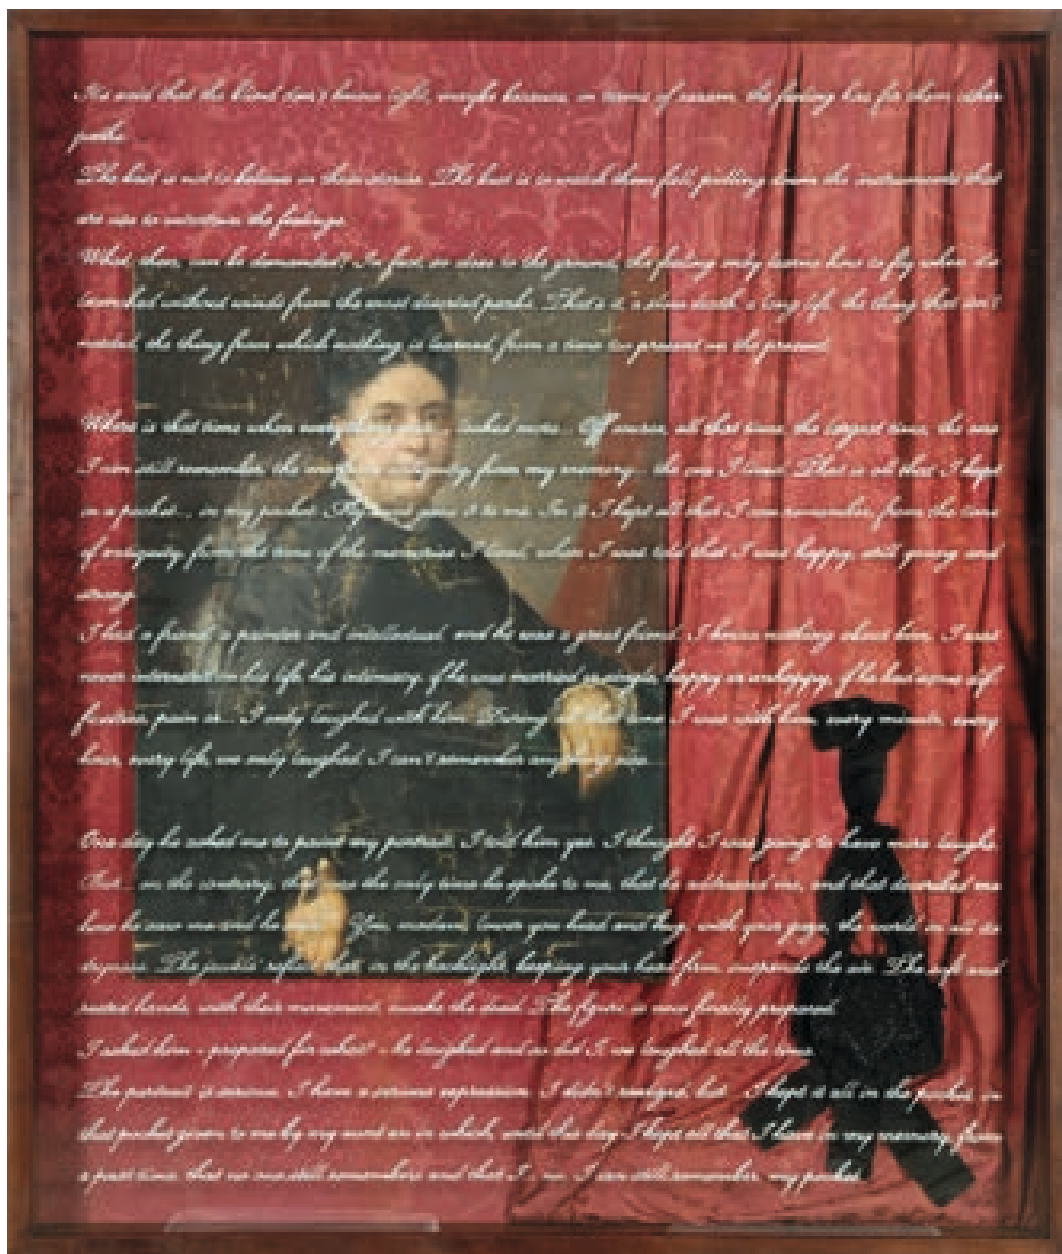 It's said that the blind don't know light, maybe because, in terms of reason, the feeling lies for them other
paths.
The best is not to believe in these stories. The best is to watch them fall, putting down the instruments that
are use to the feelings.
What then, can be demanded? In fact, so close to the ground, the feeling only knows how to fly when it's
launched without winds from the most deserted peaks. That's it: a slow death, a long life, the thing that isn't
the thing from which nothing is learned, from a time too present in the present.
Where is that time when asked more. Off course, all that time, the largest time, the one
I can still remember, the antiquity from my memory... the one I lived. That is all that I kept
in a pocket... in my pocket. My aunt gave it to me. In it I kept all that I can remember, from the time
of antiquity, from the time of the memories I lived, when I was told that I was happy, still young and
strong.
I had a friend, a painter and intellectual, and he was a great friend. I know nothing about him, I was
never interested in his life, his intimacy, if he was married or single, happy or unhappy, if he had some
pain or... I only laughed with him. During all that time I was with him, every minute, every
hour, every life, we only laughed. I can't remember anything else.
One day he asked me to paint my portrait. I told him yes. I thought I was going to have more laughs.
But... on the contrary, that was the only time he spoke to me, that he addressed me, and that described me
how he saw me and he You, madam, lower you head and hug, with your gaze, the world in
The in the backlight, keeping your head firm, suspends the air. The soft and
hands, with their movement, awake the dead. The figure is now finally prepared.
I asked him - prepared for what? He laughed and so did I, we laughed all the time.
The portrait is serious. I have a serious expression. I didn't but I kept it all in the pocket, in
that pocket given to me by my aunt an in which, until this day I kept all that I have in my memory, from
a past time that no one still remembers and that I I can still remember, my pocket.